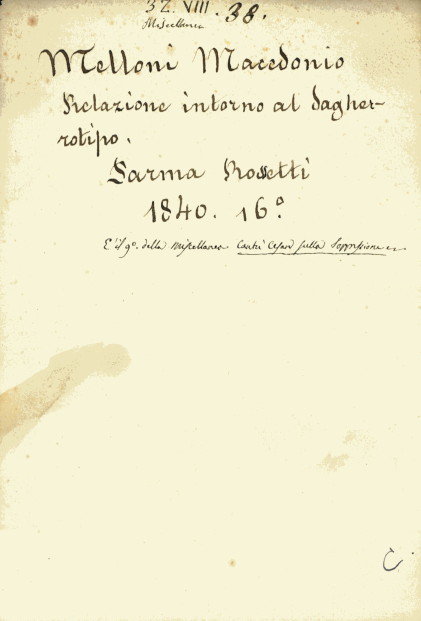 32. VIII. 38.
Miscellanea
Melloni Macedonio
Relazione intorno al dagher-
rotipo.
Parma Rossetti
1840. 16º
E' il 9º. della Miscellanea Cantù Cesare sulla